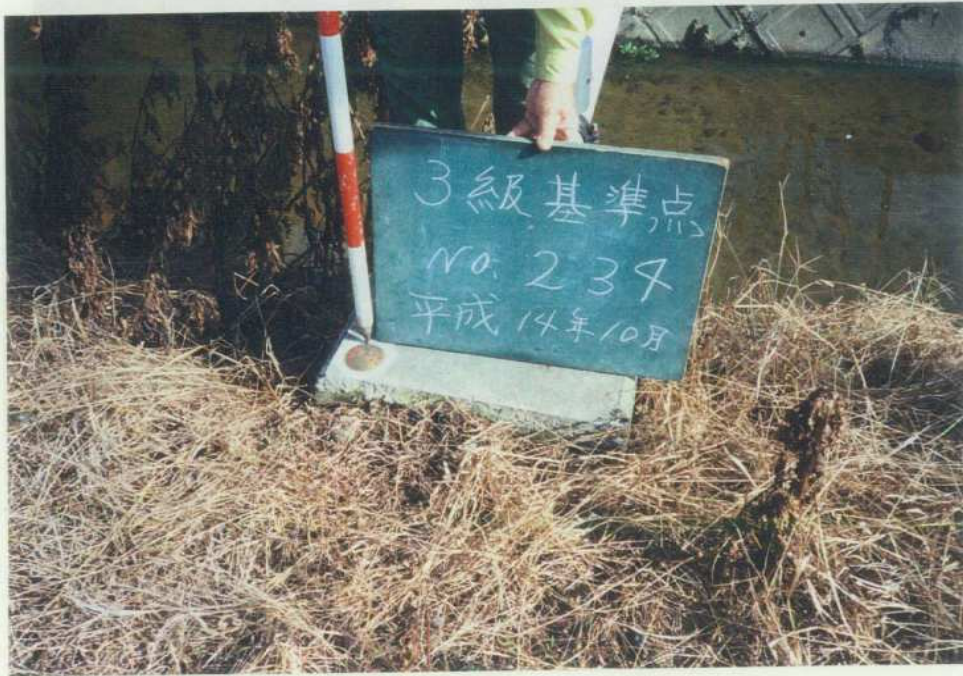 3級基準点
No. 234
平成14年10月